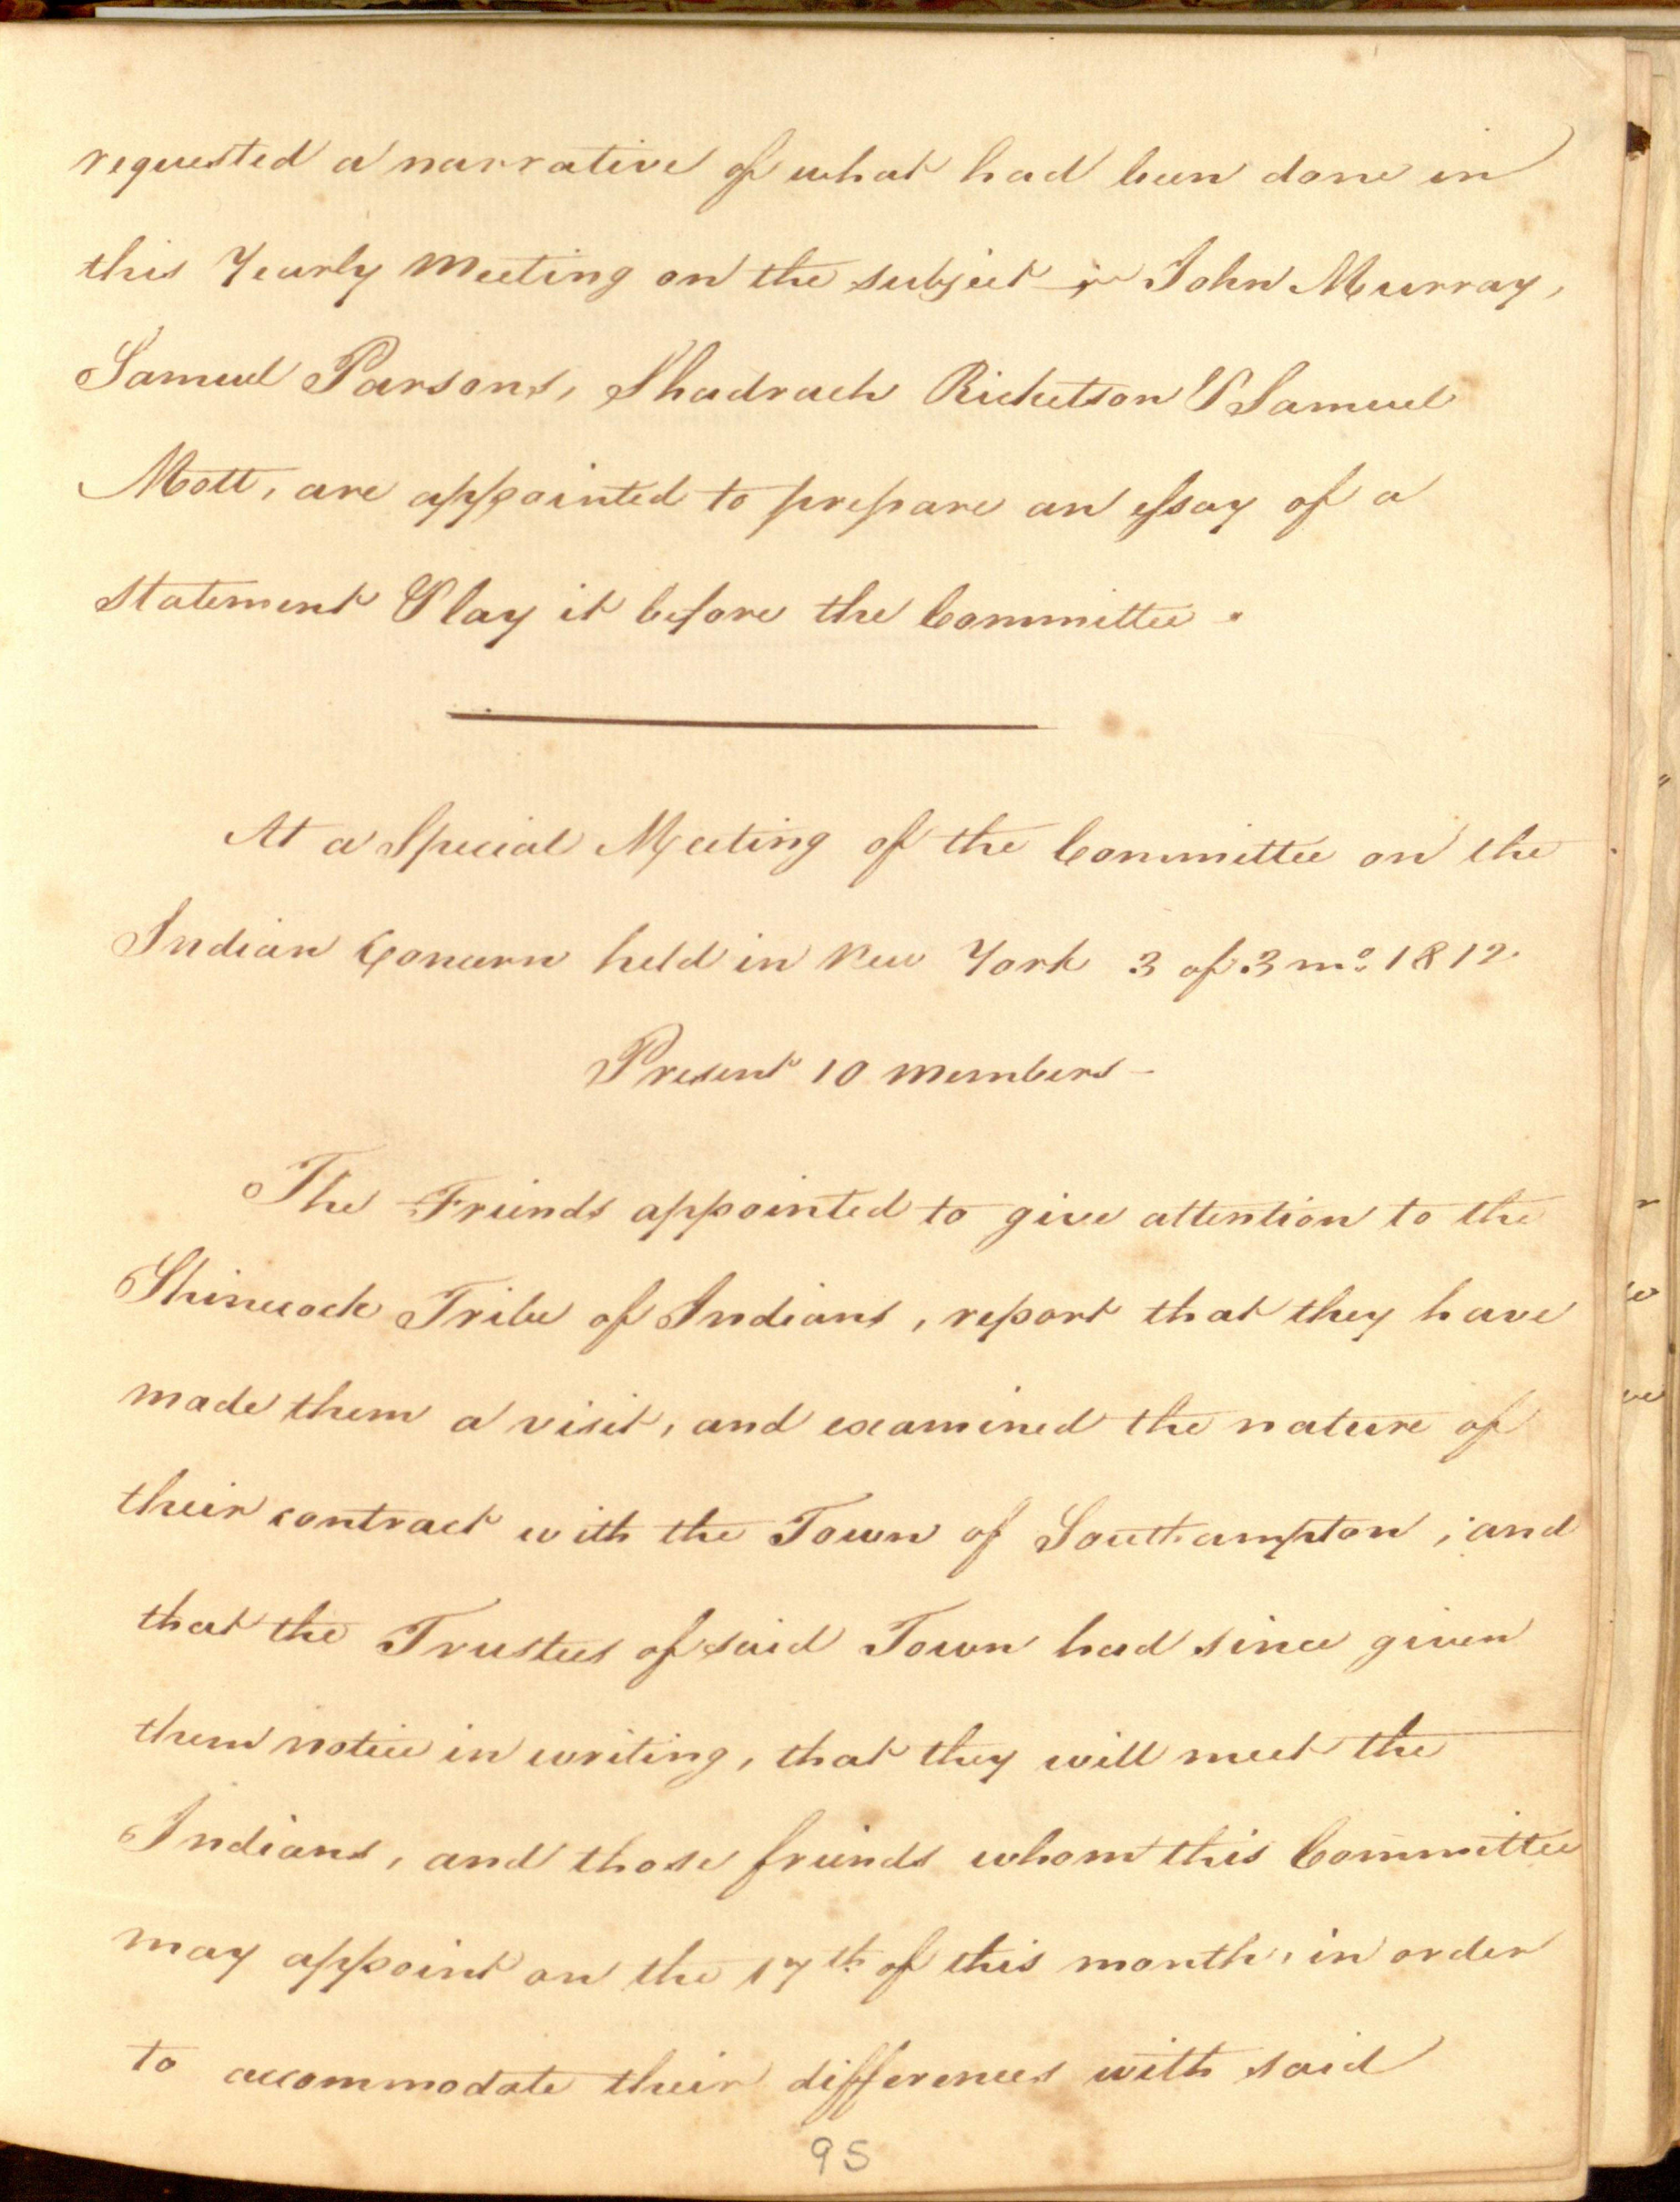 requested a narrative of what had been done in
this Yearly Meeting on the subject - John Murray,
Samuel Parsons, Shadrach Ricketson & Samuel
Mott, are appointed to prepare an essay of a
statement & lay it before the Committee.
At a Special Meeting of the Committee on the
Indian Concern held in New York 3 of 3 mo. 1812.
Present 10 members -
The Friends appointed to give attention to the
Shinecock Tribe of Indians, report that they have
made them a visit, and examined the nature of
their contract with the Town of Southampton; and
that the Trustees of said Town had since given
them notice in writing, that they will meet the
Indians, and those friends whom this Committee
may appoint on the 17th of this month, in order
to accommodate their differences with said
95